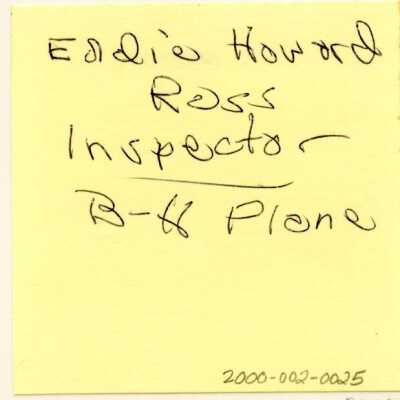 Eddie Howard
Ross
Inspector
B-H Plane
2000-002-0025